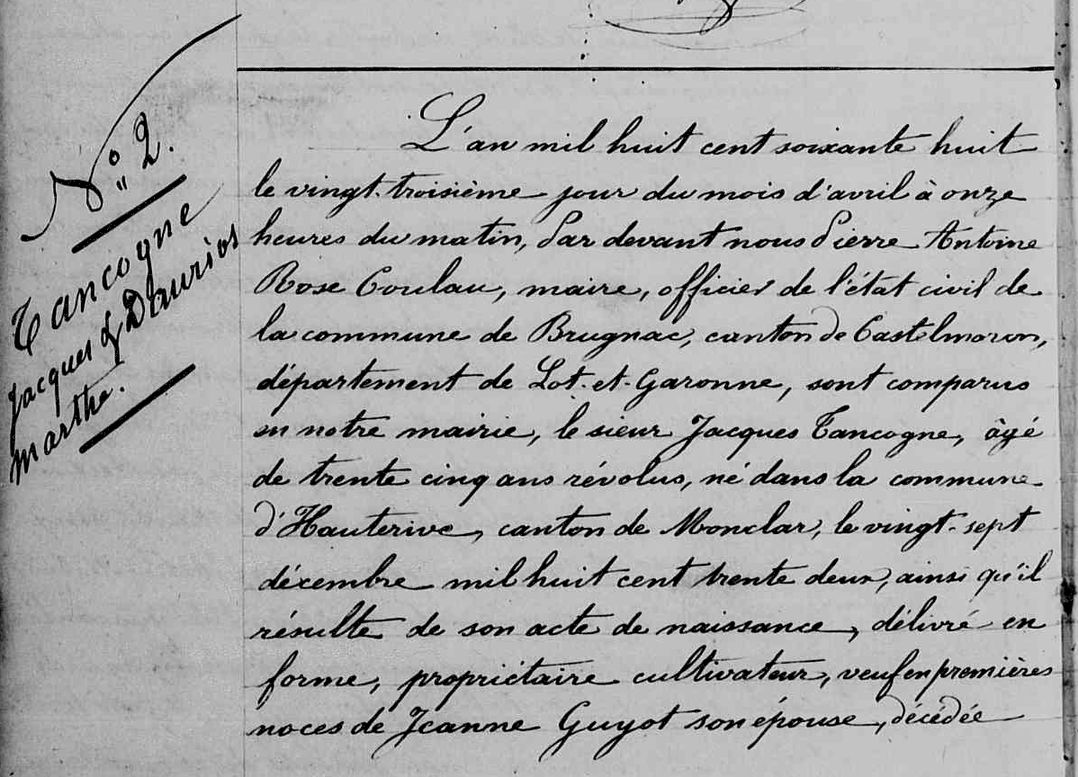 N° 2.
Tancogne
Jacques & Dauriac
marthe.
L'an mil huit cent soixante huit
le vingt-troisième jour du mois d'avril à onze
heures du matin, Par devant nous Pierre Antoine
Rose Coulau, maire, officier de l'état civil de
la commune de Brugnac, canton de Castelmoron,
département de Lot-et-Garonne, sont comparus
en notre mairie, le sieur Jacques Tancogne, âgé
de trente cinq ans révolus, né dans la commune
d'Hauterive, canton de Monclar, le vingt-sept
décembre mil huit cent trente deux, ainsi qu'il
résulte de son acte de naissance, délivré en
forme, propriétaire cultivateur, veuf en premières
noces de Jeanne Guyot son épouse, décédée